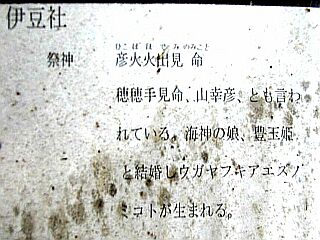 伊豆社
祭神
ひこほほでみのみこと
彦火火出見 命
穂穂手見命、山幸彦、とも言わ
れている。海神の娘、豊玉姫
と結婚しウガヤフキアエズノ
ミコトが生まれる。